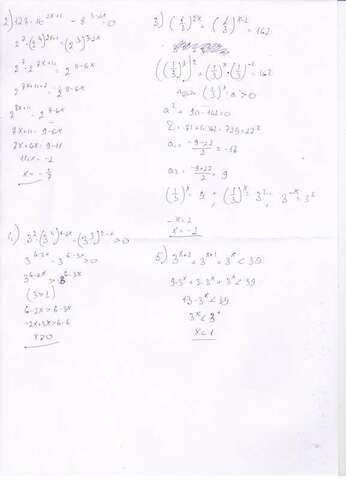 2) 128 · 16^(2x+1) - 8^(3-2x) = 0
2^7 · (2^4)^(2x+1) = (2^3)^(3-2x)
2^7 · 2^(8x+4) = 2^(9-6x)
2^(8x+11) = 2^(9-6x)
8x+11 = 9-6x
8x+6x = 9-11
x = -1/7
3) (1/3)^(2x) + (1/3)^(x-2) = 162
((1/3)^x)^2 + (1/3)^x · (1/3)^(-2) = 162
(1/3)^x = a > 0
a^2 + 9a - 162 = 0
a₁ = (-9-27)/2 = -18
a₂ = (-9+27)/2 = 9
(1/3)^x = 9; (1/3)^x = 3^2; 3^(-x) = 3^2
-x = 2
x = -2
3^(6-2x) > 3^(6-3x)
(3>1)
6-2x > 6-3x
-2x+3x > 6-6
x>0
5) 3^(x+2) + 3^(x+1) + 3^x < 39
9·3^x + 3·3^x + 3^x < 39
13·3^x < 39
3^x < 3^1
x < 1